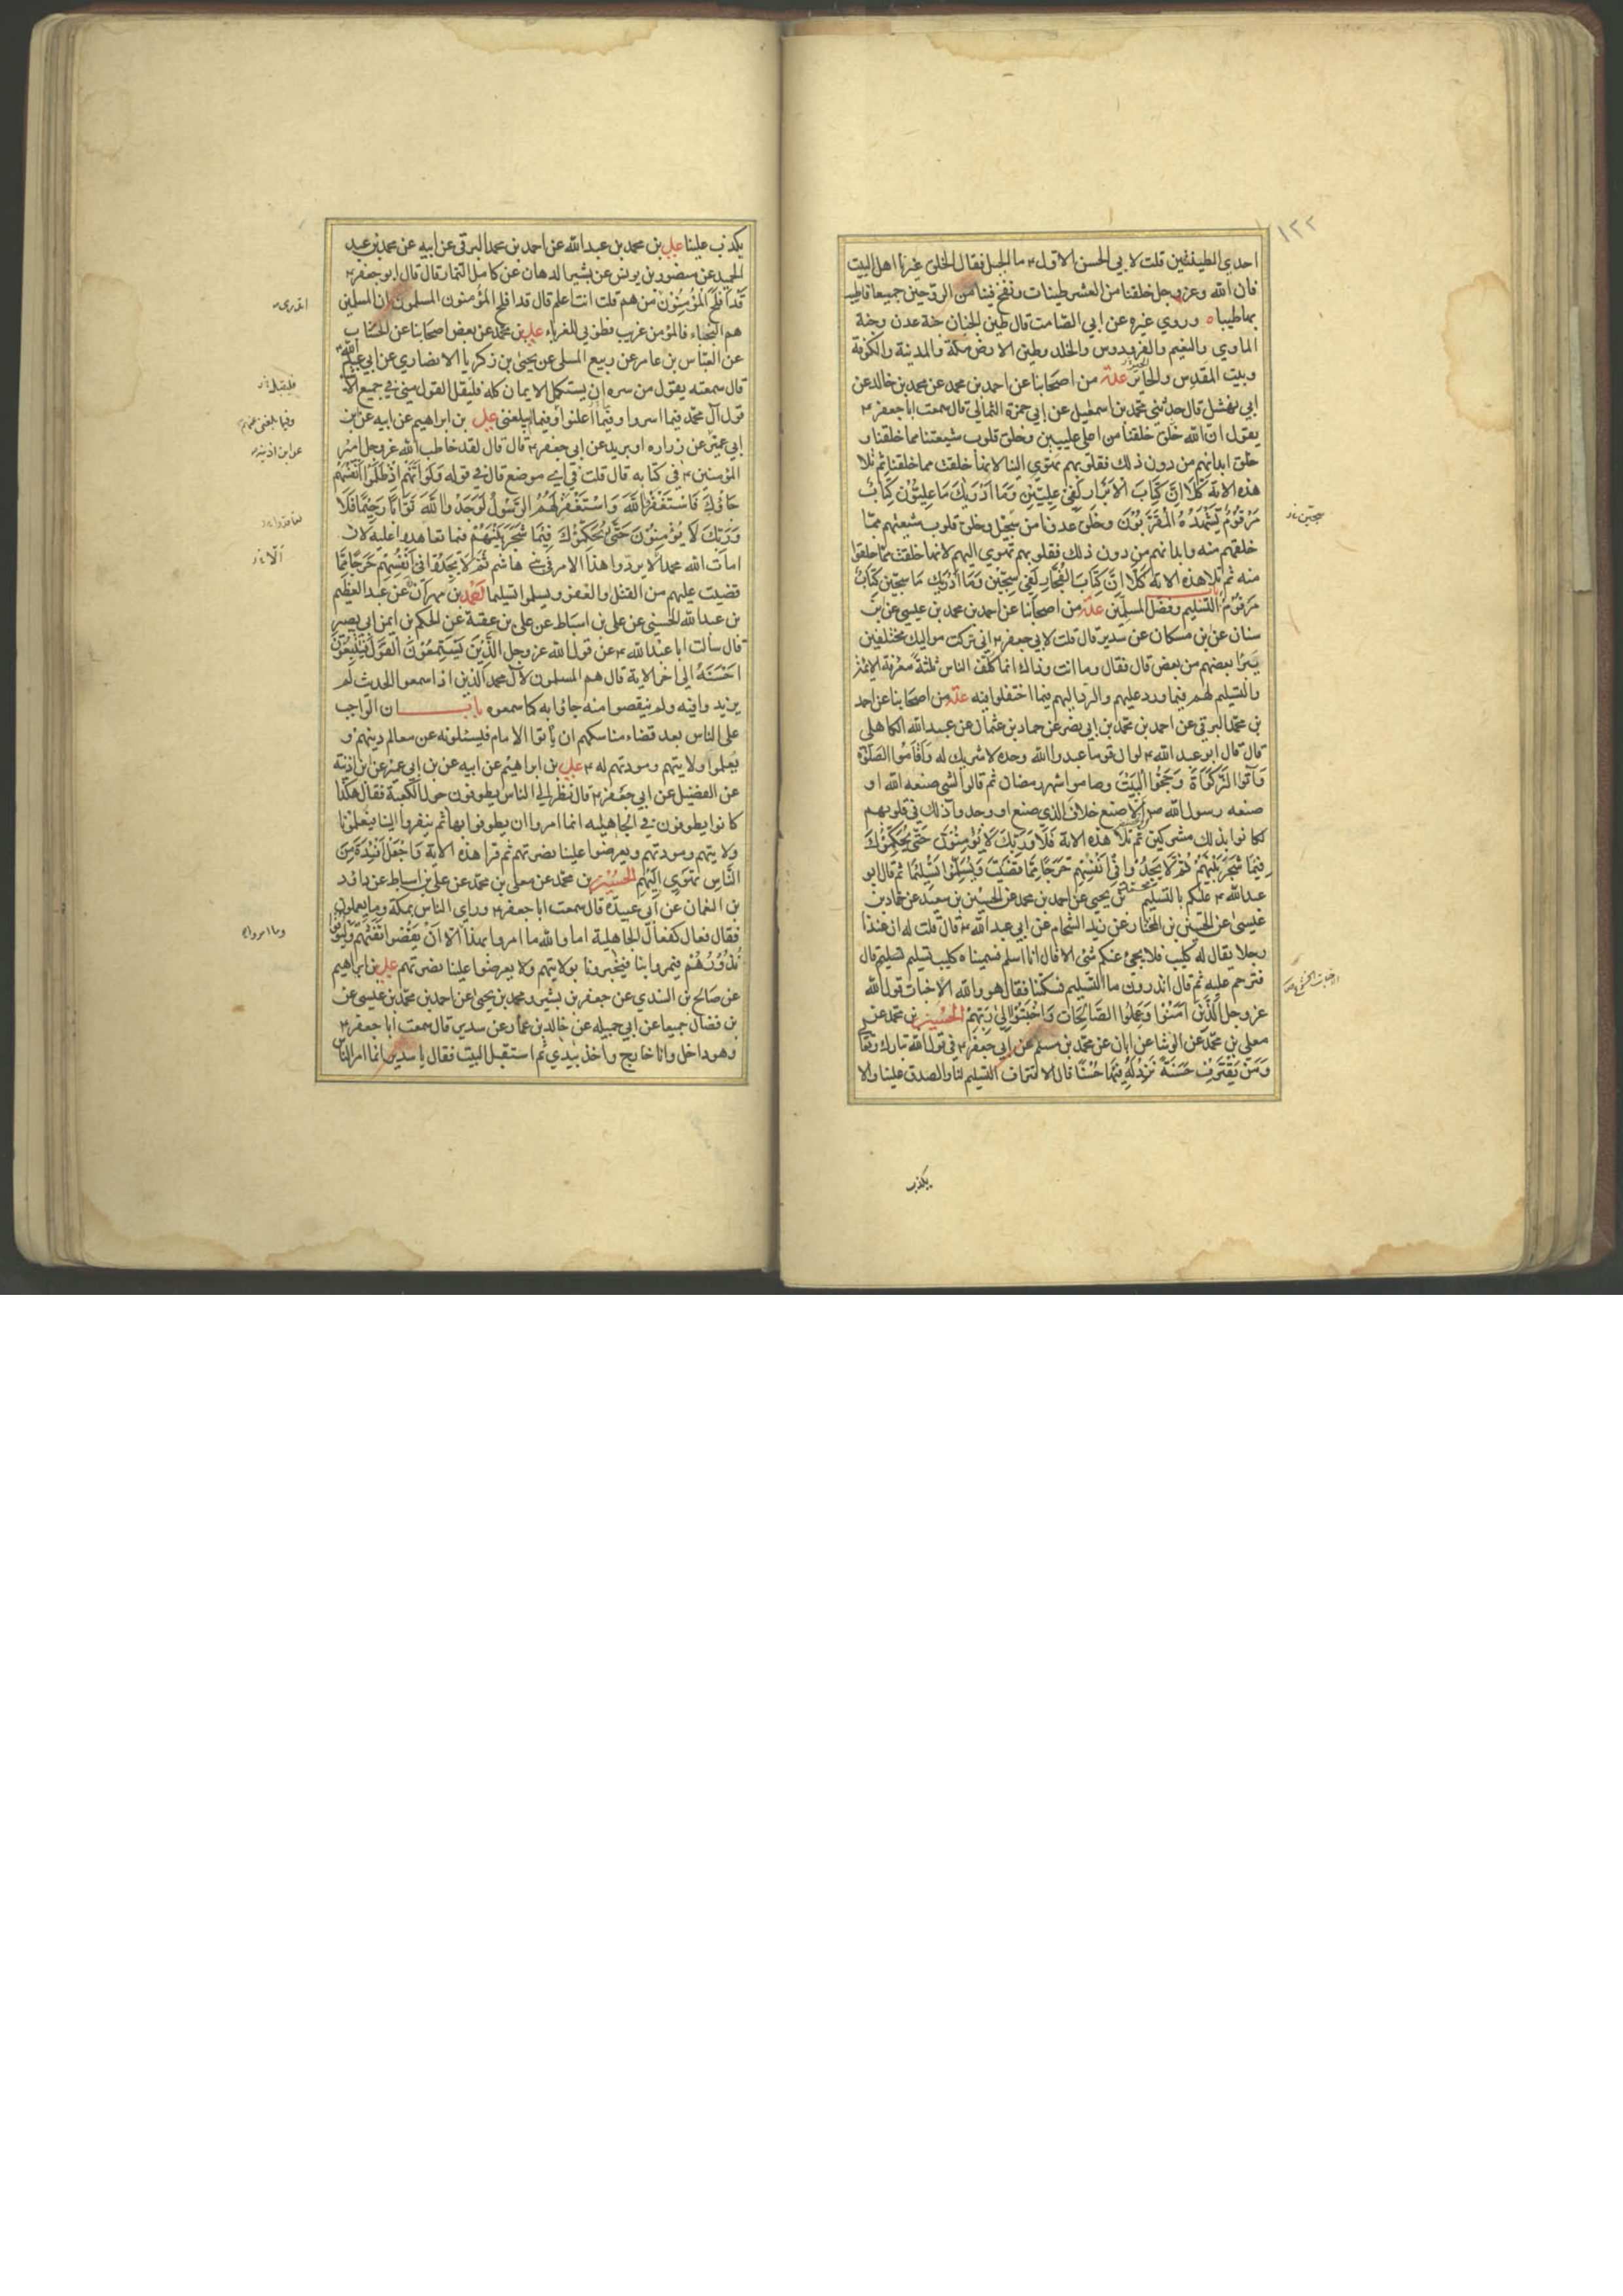 ١٢٢
احدي الطينتين قلت لابي الحسن الاول ٤ ما الجبل فقال الخلق غيرنا اهل البيت
فان الله وعزوجل خلقنا من العشر طينات ونفخ فينا من الروحين جميعا فاطيب
بها طيبا ه وروي غيره عن ابي الصامت قال طين الجنان جنة عدن وجنة
الماوي والنعيم والفردوس والخلد وطين الارض مكة والمدينة والكوفة
وبيت المقدس والحائر عدة من اصحابنا عن احمد بن محمد عن محمد بن خالد عن
ابي نهشل قال حدثني محمد بن اسمعيل عن ابي حمزة الثمالي قال سمعت ابا جعفر ٤
يقول ان الله خلق خلقنا من اعلي عليين وخلق قلوب شيعتنا مما خلقنا و
خلق ابدانهم من دون ذلك فقلوبهم تهوي الينا لانها خلقت مما خلقنا ثم تلا
هذه الاية كَلَّا اِنَّ كِتَابَ الاَبْرَارِ لَفِي عِلِيّيِنَ وَمَا اَدْرَيكَ مَا عِلِيُّوْنَ كِتَابٌ
مَرْقُومٌ يَشْهَدُهُ الْمُقَرَّبُوْنَ وخلق عدونا من سجيل وخلق قلوب شيعتهم مما
خلقهم منه وابدانهم من دون ذلك فقلوبهم تهوي اليهم لانها خلقت مما خلقوا
منه ثم تلا هذه الاية كَلَّا اِنَّ كِتَابَ الفُجَّارِ لَفِي سِجِّيْنٍ وَمَا اَدْرَيكَ مَا سِجِّين كِتَابٌ
مَرْقُوْمٌ باب التسليم وفضل المسلمين عدة من اصحابنا عن احمد بن محمد بن عيسي عن بن
سنان عن بن مسكان عن سدير قال قلت لابي جعفر ٤ اني تركت مواليك مختلفين
يتبرا بعضهم من بعض قال فقال وما انت وذاك انما كلف الناس ثلثة معرفة الائمة
والتسليم لهم فيما ورد عليهم والرد اليهم فيما اختلفوا فيه عدة من اصحابنا عن احمد
بن محمد البرقي عن احمد بن محمد بن ابي نصر عن حماد بن عثمان عن عبد الله الكاهلي
قال قال ابو عبد الله ٤ لو ان قوما عبدوا الله وحده لا شريك له وَاَقَامُوا الصَّلٰوةَ
وَآتَوْا الزَّكٰوةَ وَحَجُّوا البَيْتَ وصاموا شهر رمضان ثم قالوا لشي صنعه الله او
صنعه رسول الله ص الا صنع خلاف الذي صنع او وجدوا ذلك في قلوبهم
لكانوا بذلك مشركين ثم تلا هذه الاية فَلَا وَرَبِّكَ لَا يُؤْمِنُوْنَ حَتّٰي يُحَكِّمُوْكَ
فِيْمَا شَجَرَ بَيْنَهُمْ ثُمَّ لَا يَجِدُوْا فِي اَنْفُسِهِم حَرَجًا مِمَّا قَضَيْتَ وَيُسَلِّمُوْا تَسْلِيْمًا ثم قال ابو
عبد الله ٤ عليكم بالتسليم محمد بن يحيي عن احمد بن محمد عن الحسين بن سعيد عن حماد بن
عيسى عن الحسين بن المختار عن زيد الشحام عن ابي عبد الله ٤ قال قلت له ان عندنا
رجلا يقال له كليب فلا يجئ عنكم شئ الا قال انا اسلم فسميناه كليب تسليم قال
فترحم عليه ثم قال اتدرون ما التسليم فسكتنا فقال هو والله الاخبات قول الله
عزوجل الَّذِيْنَ اٰمَنُوْا وَعَمِلُوا الصَّالِحَاتِ وَاَخْبَتُوْا اِلٰى رَبِّهِمْ الحسين بن محمد عن
معلي بن محمد عن الوشا عن ابان عن محمد بن مسلم عن ابي جعفر ٤ في قول الله تبارك وتعالي
وَمَنْ يَقْتَرِفْ حَسَنَةً نَزِدْ لَهُ فِيْهَا حُسْنًا قال الاقتراف التسليم لنا والصدق علينا والا
سجين
يكذب
يكذب علينا علي بن محمد بن عبد الله عن احمد بن محمد البرقي عن ابيه عن محمد بن عبد
الحميد عن منصور بن يونس عن بشير الدهان عن كامل التمار قال قال ابو جعفر ٤
قَدْ اَفْلَحَ المُؤْمِنُوْنَ من هم قلت انت اعلم قال قد افلح المؤمنون المسلمون ان المسلمين
هم النجباء فالمؤمن غريب فطوبي للغرباء علي بن محمد عن بعض اصحابنا عن الخشاب
عن العباس بن عامر عن ربيع المسلي عن يحيي بن زكريا الانصاري عن ابي عبد الله
قال سمعته يقول من سره ان يستكمل الايمان كله فليقل القول مني في جميع الا
قول آل محمد فيما اسروا وفيما اعلنوا وفيما بلغني علي بن ابراهيم عن ابيه عن بن
ابي عمير عن زراره او بريد عن ابي جعفر ٤ قال قال لقد خاطب الله عزوجل امير
المؤمنين ٤ في كتابه قال قلت في اي موضع قال في قوله وَلَوْ اَنَّهُمْ اِذْ ظَلَمُوْا اَنْفُسَهُمْ
جَاؤُكَ فَاسْتَغْفَرُوا اللّٰهَ وَاسْتَغْفَرَ لَهُمُ الرَّسُوْلُ لَوَجَدُوا اللّٰهَ تَوَّابًا رَحِيْمًا فَلَا
وَرَبِّكَ لَا يُؤْمِنُوْنَ حَتّٰى يُحَكِّمُوْكَ فِيْمَا شَجَرَ بَيْنَهُمْ فيما تعاهدوا عليه لان
امات الله محمدا لا يردوا هذا الامر في بني هاشم ثُمَّ لَا يَجِدُوْا فِي اَنْفُسِهِمْ حَرَجًا مِمَّا
قضيت عليهم من القتل والعفو ويسلموا تسليما احمد بن مهران عن عبد العظيم
بن عبد الله الحسني عن علي بن اسباط عن علي بن عقبة عن الحكم بن ايمن ابي بصير
قال سالت ابا عبد الله ٤ عن قول الله عزوجل الَّذِيْنَ يَسْتَمِعُوْنَ القَوْلَ فَيَتَّبِعُوْنَ
اَحْسَنَهُ الي اخر الاية قال هم المسلمون لآل محمد الذين اذا سمعوا الحديث لم
يزيدوا فيه ولم ينقصوا منه جاؤا به كما سمعوه باب ان الواجب
علي الناس بعد قضاء مناسكهم ان ياتوا الامام فيسئلونه عن معالم دينهم و
يعلموا ولايتهم ومودتهم له ٤ علي بن ابراهيم عن ابيه عن بن ابي عمير عن بن اذينة
عن الفضيل عن ابي جعفر ٤ قال نظر الي الناس يطوفون حول الكعبة فقال هكذا
كانوا يطوفون في الجاهلية انما امروا ان يطوفوا بها ثم ينفروا الينا فيعلمونا
ولايتهم ومودتهم ويعرضوا علينا نصرتهم ثم قرا هذه الاية وَاجْعَلْ اَفْئِدَةً مِنَ
النَّاسِ تَهْوِي اِلَيْهِمْ الحسين بن محمد عن معلي بن محمد عن علي بن اسباط عن داؤد
بن النعمان عن ابي عبيدة قال سمعت ابا جعفر ٤ وراي الناس بمكة وما يعملون
فقال فعال كفعال الجاهلية اما والله ما امروا بهذا الا اَنْ يَقْضُوا تَفَثَهُمْ وَلْيُوْفُوا
نُذُوْرَهُمْ فيمروا بنا فيخبرونا بولايتهم ولا يعرضوا علينا نصرتهم علي بن ابراهيم
عن صالح بن السندي عن جعفر بن بشير ومحمد بن يحيي عن احمد بن محمد بن عيسي عن
بن فضال جميعا عن ابي جميله عن خالد بن عمار عن سدير قال سمعت ابا جعفر ٤
وهو داخل وانا خارج واخذ بيدي ثم استقبل البيت فقال يا سدير انما امر الناس
اتدري
فليقل
وفيما بلغني
عن ابن اذينه
وما امروا